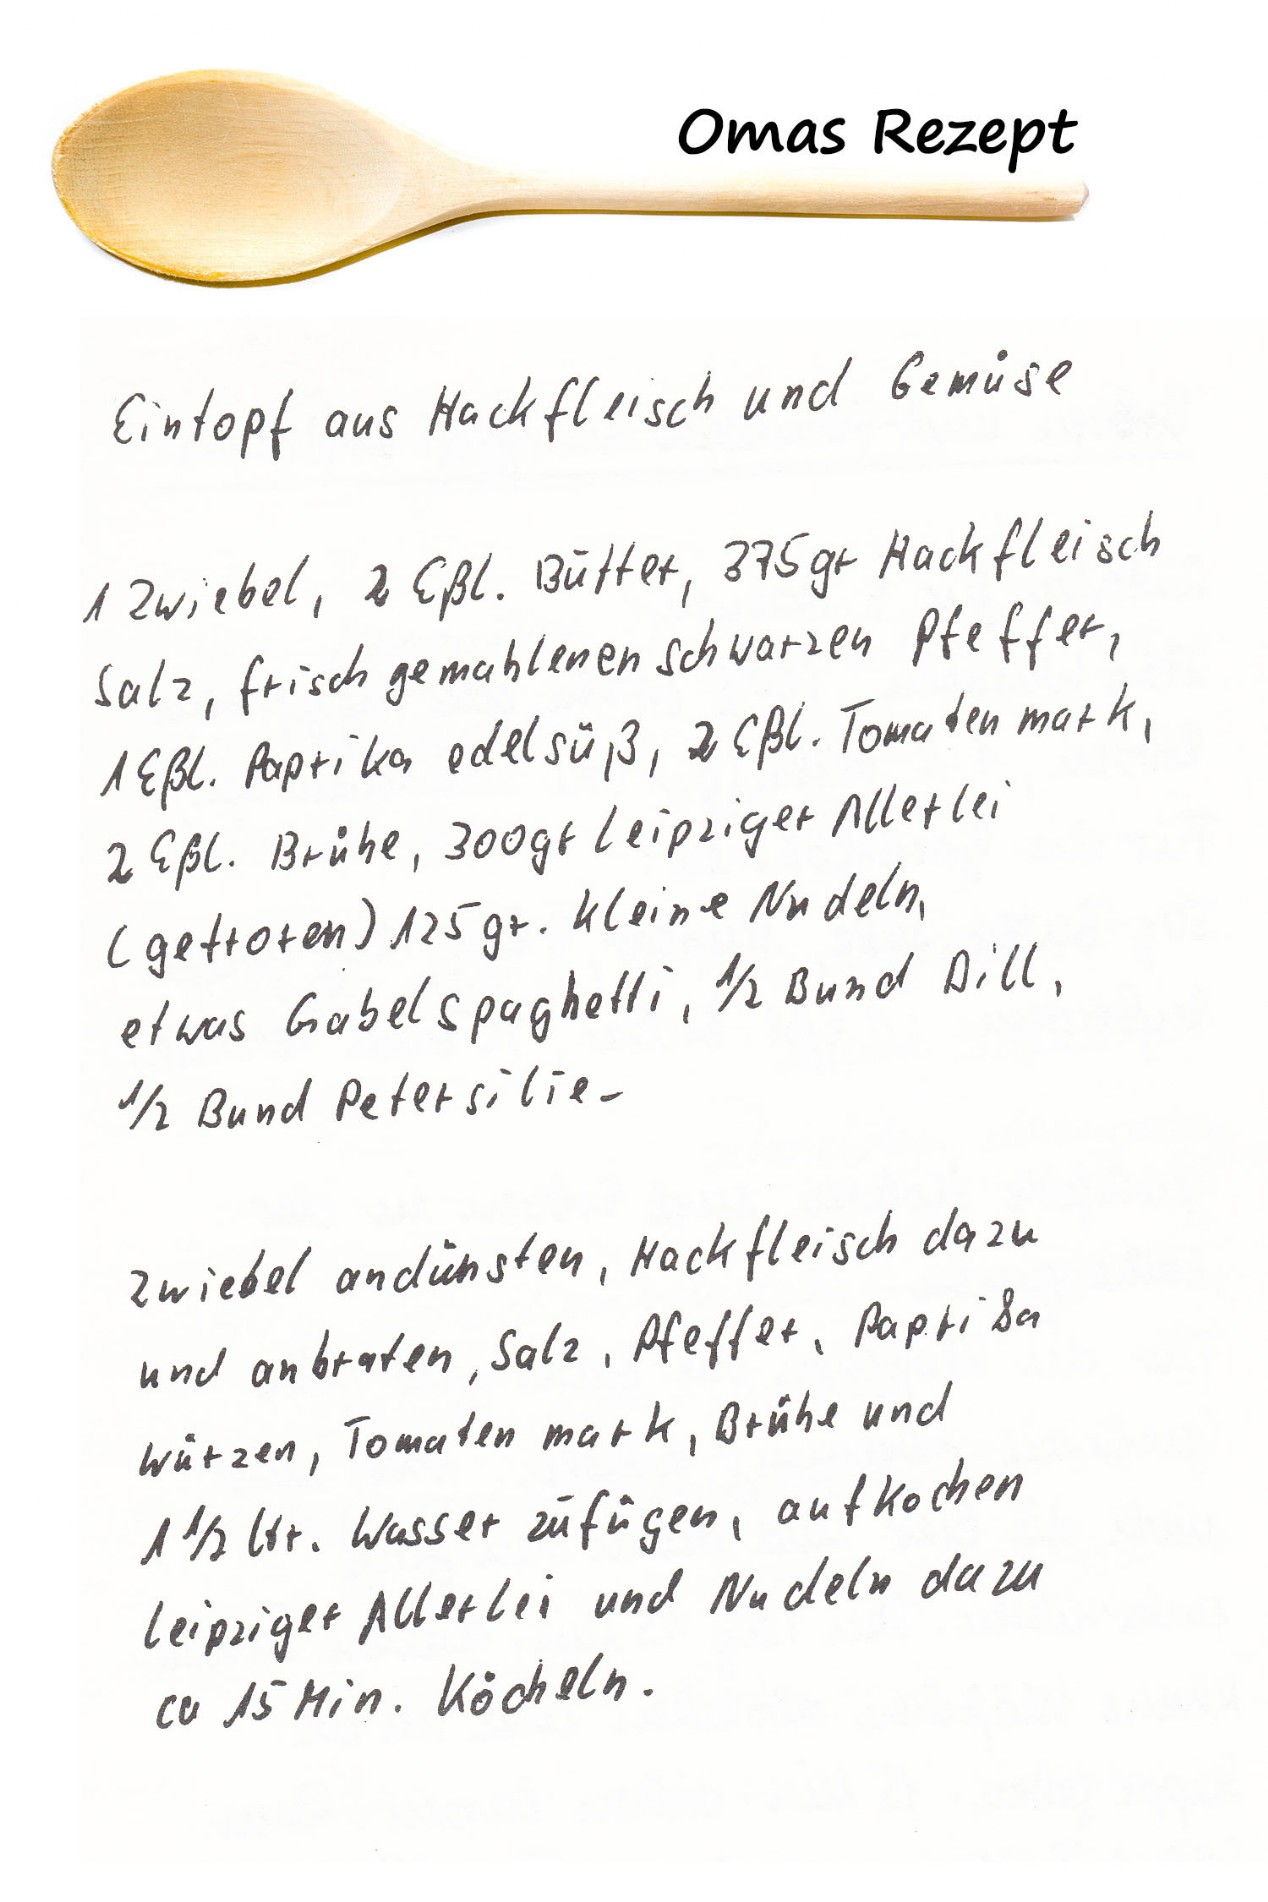 Omas Rezept
Eintopf aus Hackfleisch und Gemüse
1 Zwiebel, 2 Eßl. Butter, 375gr Hackfleisch
Salz, frisch gemahlenen schwarzen Pfeffer,
1 Eßl. Paprika edelsüß, 2 Eßl. Tomatenmark,
2 Eßl. Brühe, 300gr Leipziger Allerlei
(gefroren) 125gr. kleine Nudeln,
etwas Gabelspaghetti, 1/2 Bund Dill,
1/2 Bund Petersilie-
Zwiebel andünsten, Hackfleisch dazu
und anbraten, Salz, Pfeffer, Paprika
würzen, Tomatenmark, Brühe und
1 1/2 ltr. Wasser zufügen, aufkochen
Leipziger Allerlei und Nudeln dazu
ca 15 Min. Köcheln.